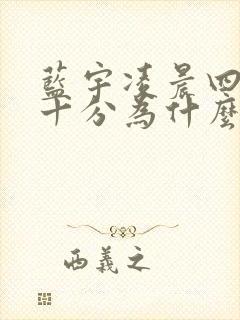 藍宇凌晨四
十分為什麼
西義之